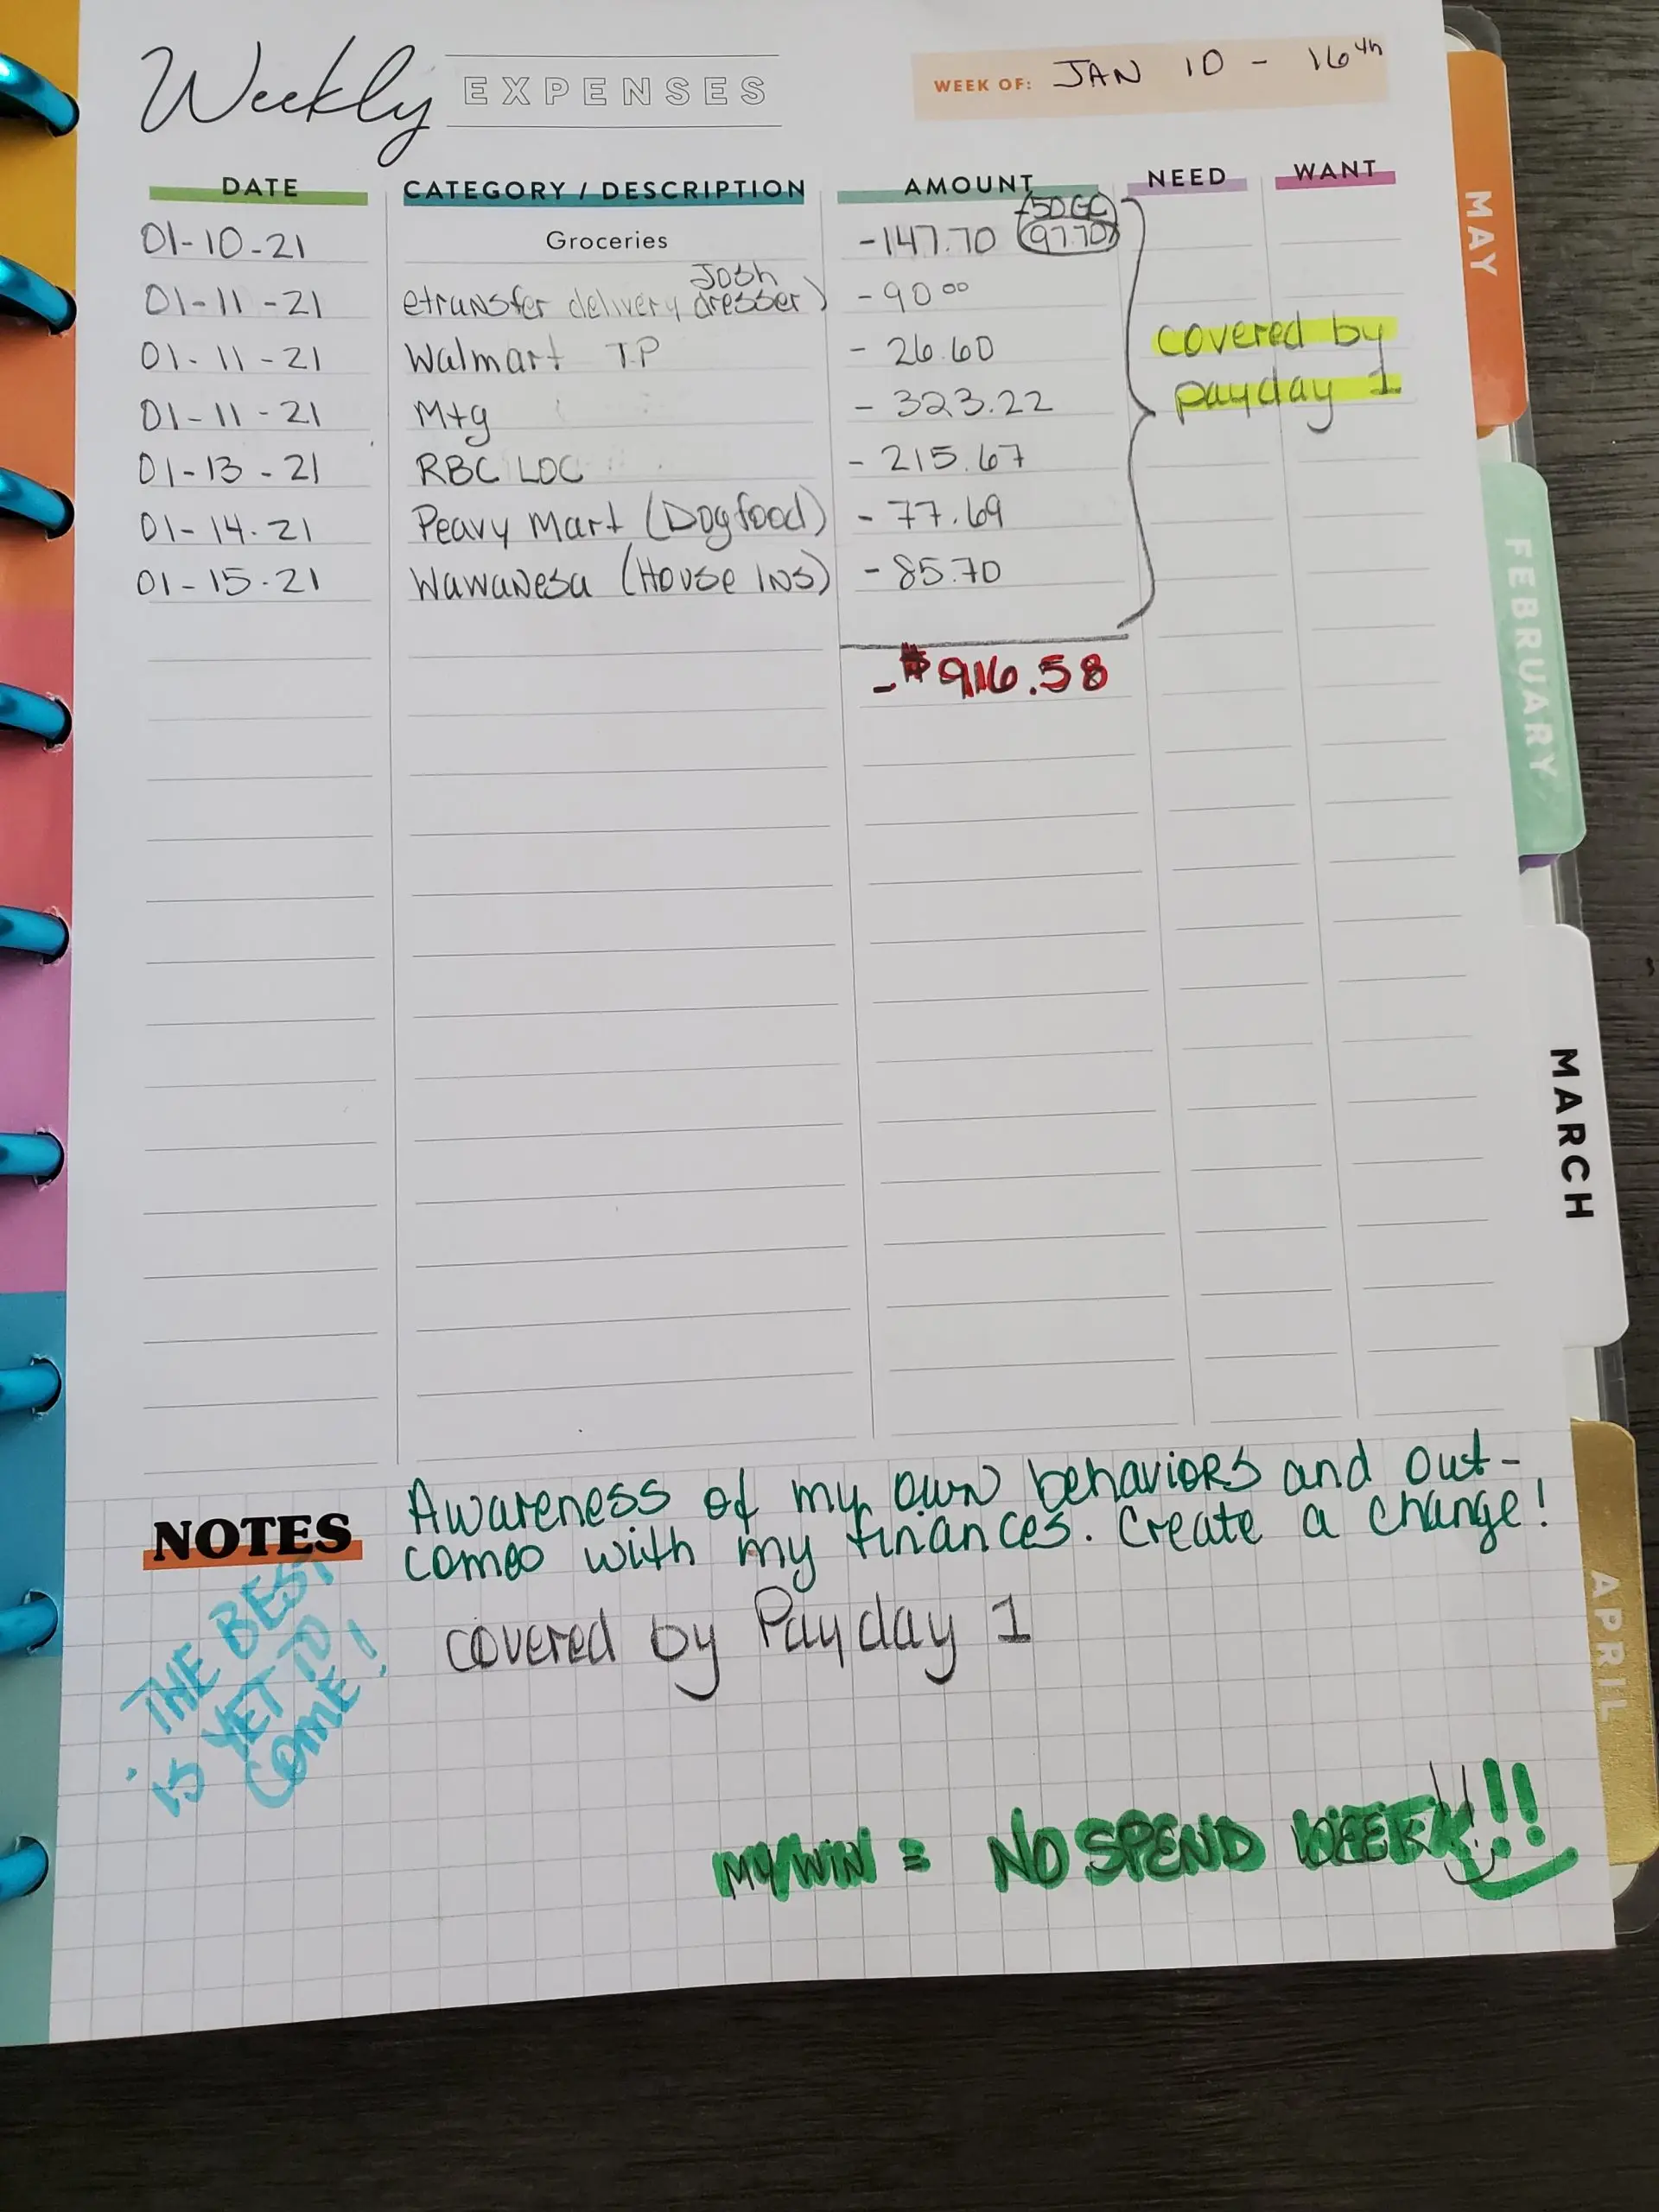 Weekly EXPENSES
WEEK OF: JAN 10 - 16th
DATE CATEGORY / DESCRIPTION AMOUNT NEED WANT
(50 GC)
01-10-21 Groceries -147.70 (97.70)
Josh
01-11-21 etransfer delivery dresser) -90 00
01-11-21 Walmart TP - 26.60
01-11-21 Mtg - 323.22
01-13-21 RBC LOC - 215.67
01-14-21 Peavy Mart (Dogfood) - 77.69
01-15-21 Wawanesa (House Ins) - 85.70
covered by
payday 1
-$916.58
NOTES
Awareness of my own behaviors and out-
comes with my finances. Create a change!
covered by Payday 1
THE BEST
IS YET TO
COME!
MY WIN = NO SPEND WEEK!!
MAY
FEBRUARY
MARCH
APRIL